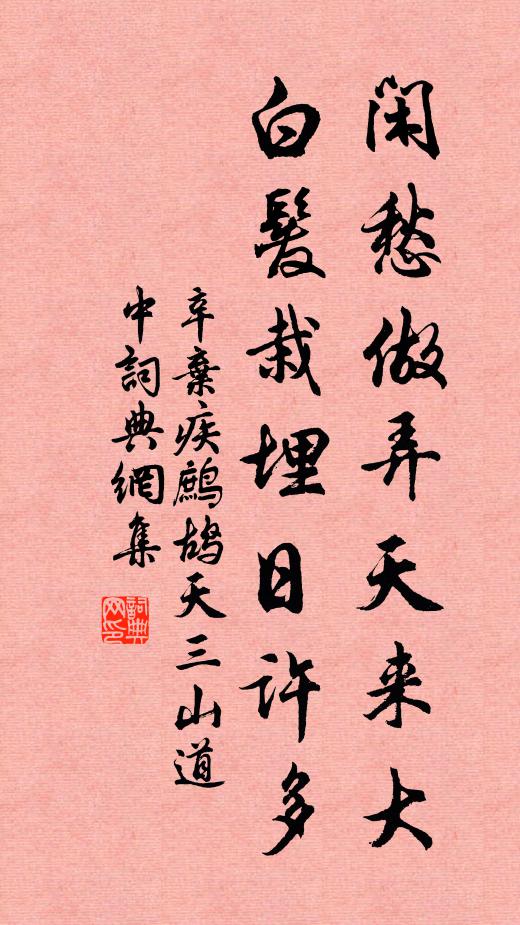 闲愁做弄天来大
白髮栽埋日许多
辛棄疾鹧鸪天三山道
中詞典網集
詞典网印